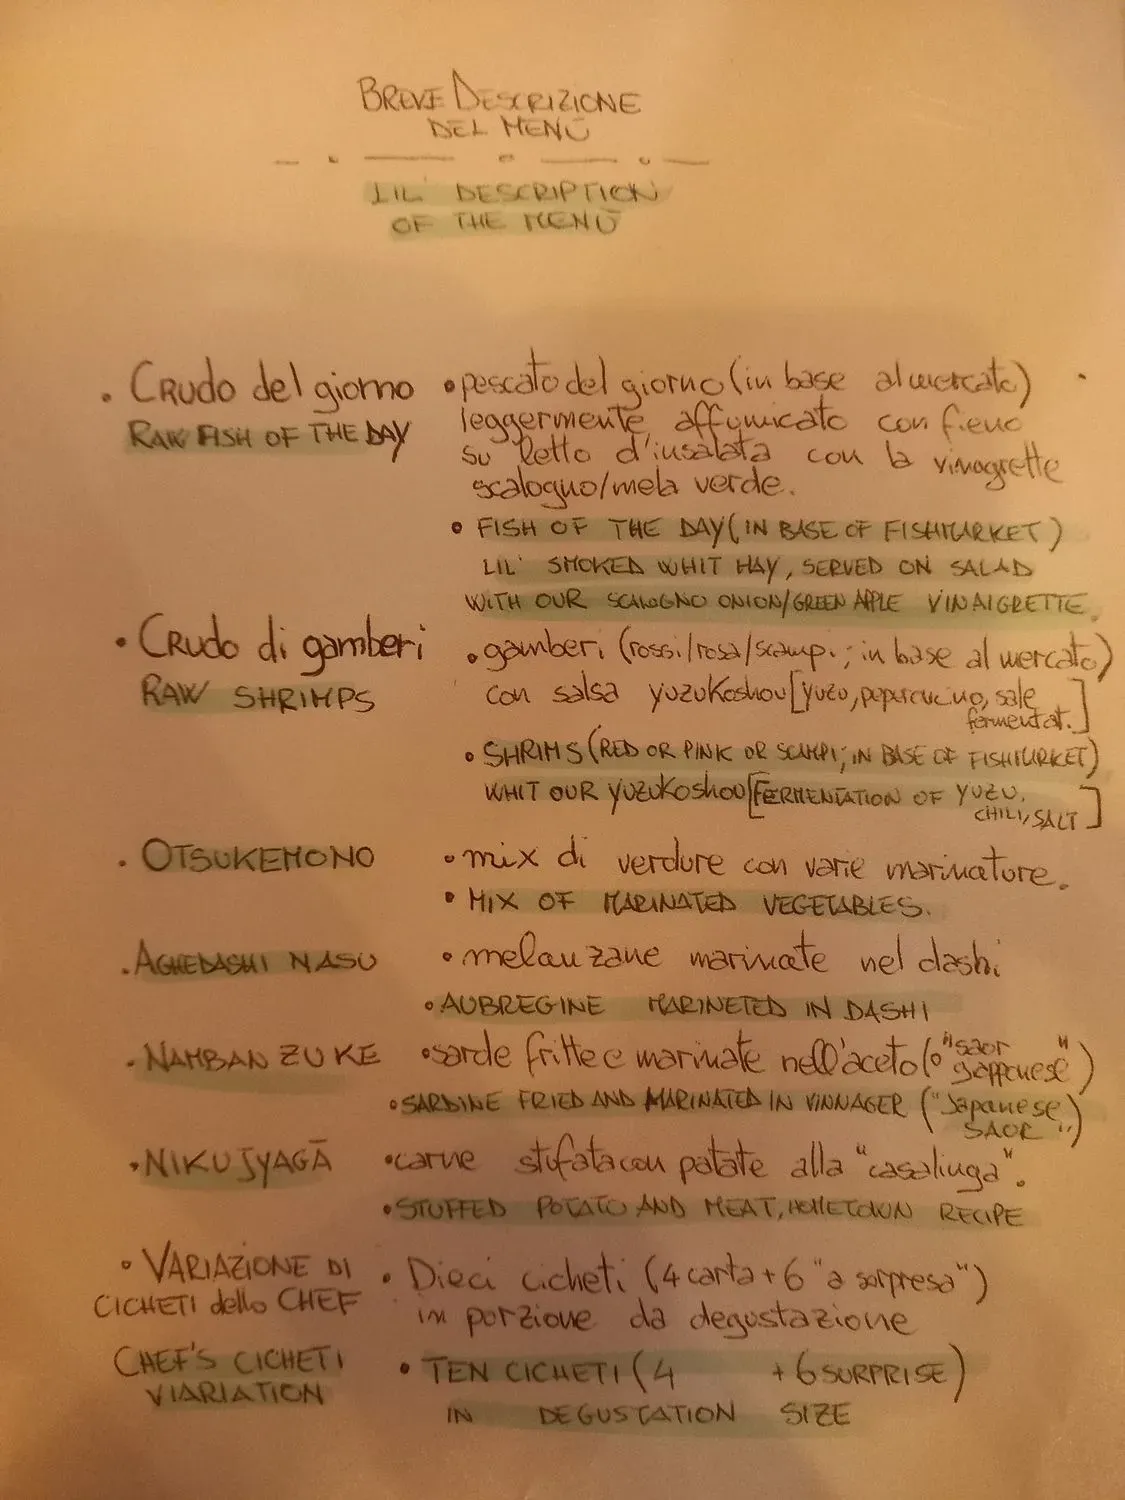 BREVE DESCRIZIONE
DEL MENÙ
LIL' DESCRIPTION
OF THE MENÙ
• CRUDO del giorno
RAW FISH OF THE DAY
• pescato del giorno (in base al mercato)
leggermente affumicato con fieno
su letto d'insalata con la vinagrette
scalogno/mela verde.
• FISH OF THE DAY (IN BASE OF FISHMARKET)
LIL' SMOKED WHIT HAY, SERVED ON SALAD
WITH OUR SCALOGNO ONION/GREEN APPLE VINAIGRETTE.
• CRUDO di gamberi
RAW SHRIMPS
• gamberi (rossi/rosa/scampi; in base al mercato)
con salsa yuzukoshou [yuzu, peperoncino, sale
fermentat.]
• SHRIMS (RED OR PINK OR SCAMPI; IN BASE OF FISHMARKET)
WHIT OUR YUZUKOSHOU [FERMENTATION OF YUZU,
CHILI, SALT]
• OTSUKEMONO
• mix di verdure con varie marinature.
• MIX OF MARINATED VEGETABLES.
• AGHEDASHI NASU
• melanzane marinate nel dashi
• AUBREGINE MARINETED IN DASHI
• NAMBAN ZUKE
• sarde fritte e marinate nell'aceto (o "saor
giapponese")
• SARDINE FRIED AND MARINATED IN VINNAGER ("Japanese
SAOR")
• NIKUJYAGĀ
• carne stufata con patate alla "casalinga".
• STUFFED POTATO AND MEAT, HOMETOWN RECIPE
• VARIAZIONE DI
CICHETI dello CHEF
CHEF'S CICHETI
VIARIATION
• Dieci cicheti (4 carta + 6 "a sorpresa")
in porzione da degustazione
• TEN CICHETI (4 + 6 SURPRISE)
IN DEGUSTATION SIZE